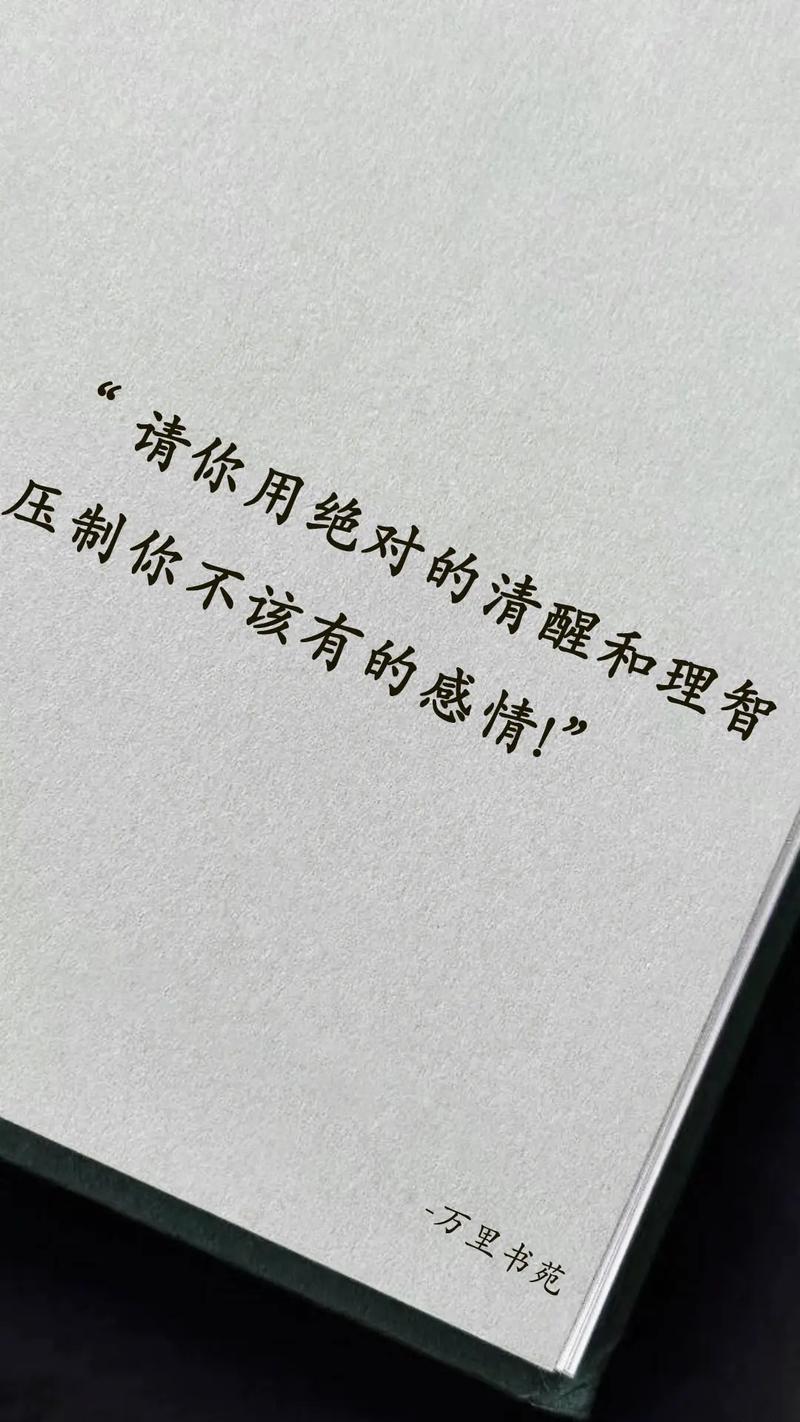 “请你用绝对的清醒和理智
压制你不该有的感情!”
-万里书苑